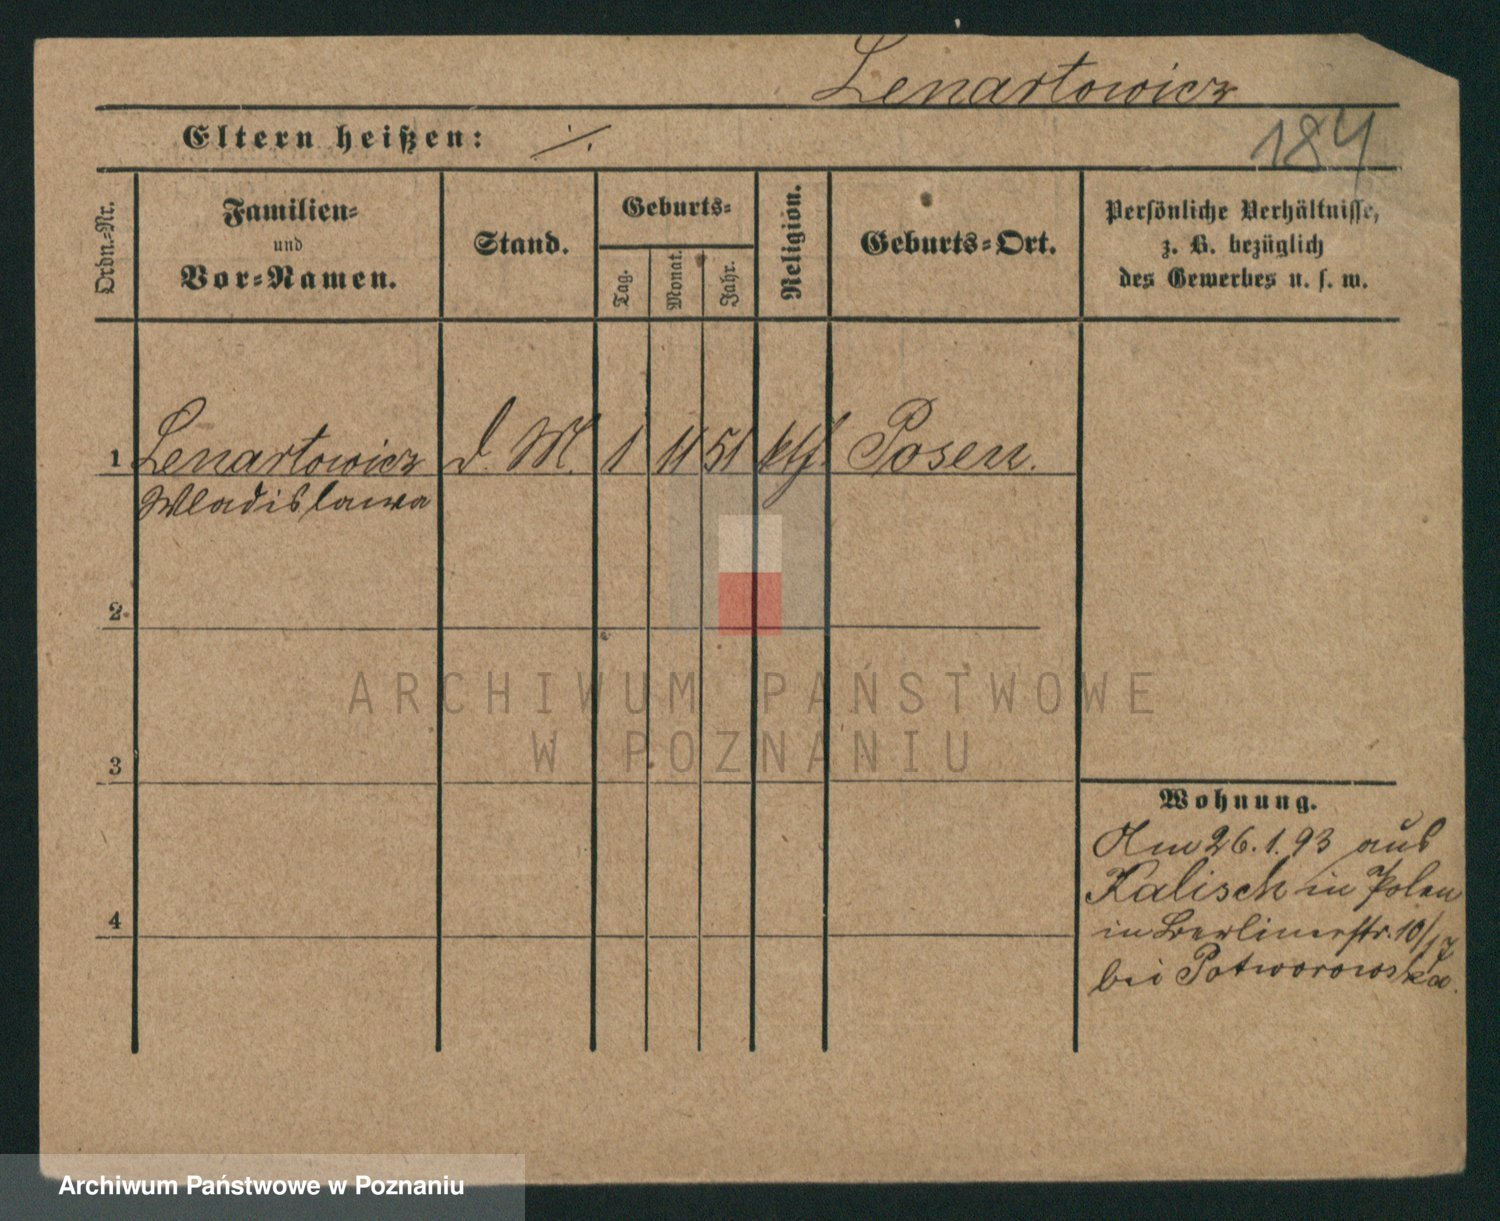 Lenartowicz
184
Eltern heißen: ./.
Ordn.-Nr.
Familien-
und
Vor-Namen.
Stand.
Geburts-
Tag.
Monat.
Jahr.
Religion.
Geburts-Ort.
Persönliche Verhältnisse,
z. B. bezüglich
des Gewerbes u. s. w.
1 Lenartowicz d. M. 1 11 51 kth. Posen.
Wladislawa
2.
3
4
Wohnung.
Am 26.1.93 aus
Kalisch in Polen
in Berlinerstr. 10/17
bei Potworowska.
ARCHIWUM PAŃSTWOWE
W POZNANIU
Archiwum Państwowe w Poznaniu